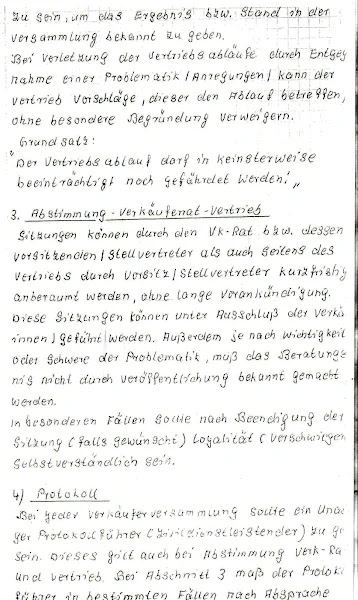 zu sein, um das Ergebnis bzw. Stand in der
Versammlung bekannt zu geben.
Bei Verletzung der Vertriebsabläufe durch Entgeg
nahme einer Problematik/Anregungen/kann der
Vertrieb Vorschläge, dieser den Ablauf betreffen,
ohne besondere Begründung verweigern.
Grundsatz:
"Der Vertriebsablauf darf in keinsterweise
beeinträchtigt noch gefährdet werden!"
3. Abstimmung-Verkäuferrat-Vertrieb
Sitzungen können durch den Vk-Rat bzw. dessen
Vorsitzenden/Stellvertreter als auch seitens des
Vertriebs durch Vorsitz/Stellvertreter kurzfristig
anberaumt werden, ohne lange Vorankündigung.
Diese Sitzungen können unter Ausschluß der Verkä
innen/geführt werden. Außerdem je nach Wichtigkeit
oder Schwere der Problematik, muß das Beratungs
nis nicht durch Veröffentlichung bekannt gemacht
werden.
In besonderen Fällen sollte nach Beendigung der
Sitzung (falls gewünscht) Loyalität (Verschwiegen
Selbstverständlich sein.
4) Protokoll
Bei jeder Verkäuferversammlung sollte ein Unab
ger Protokollführer (Zivildienstleistender) zu ge
sein. Dieses gilt auch bei Abstimmung Verk-Ra
und Vertrieb. Bei Abschnitt 3 muß der Protoko
führer in bestimmten Fällen nach Absprache